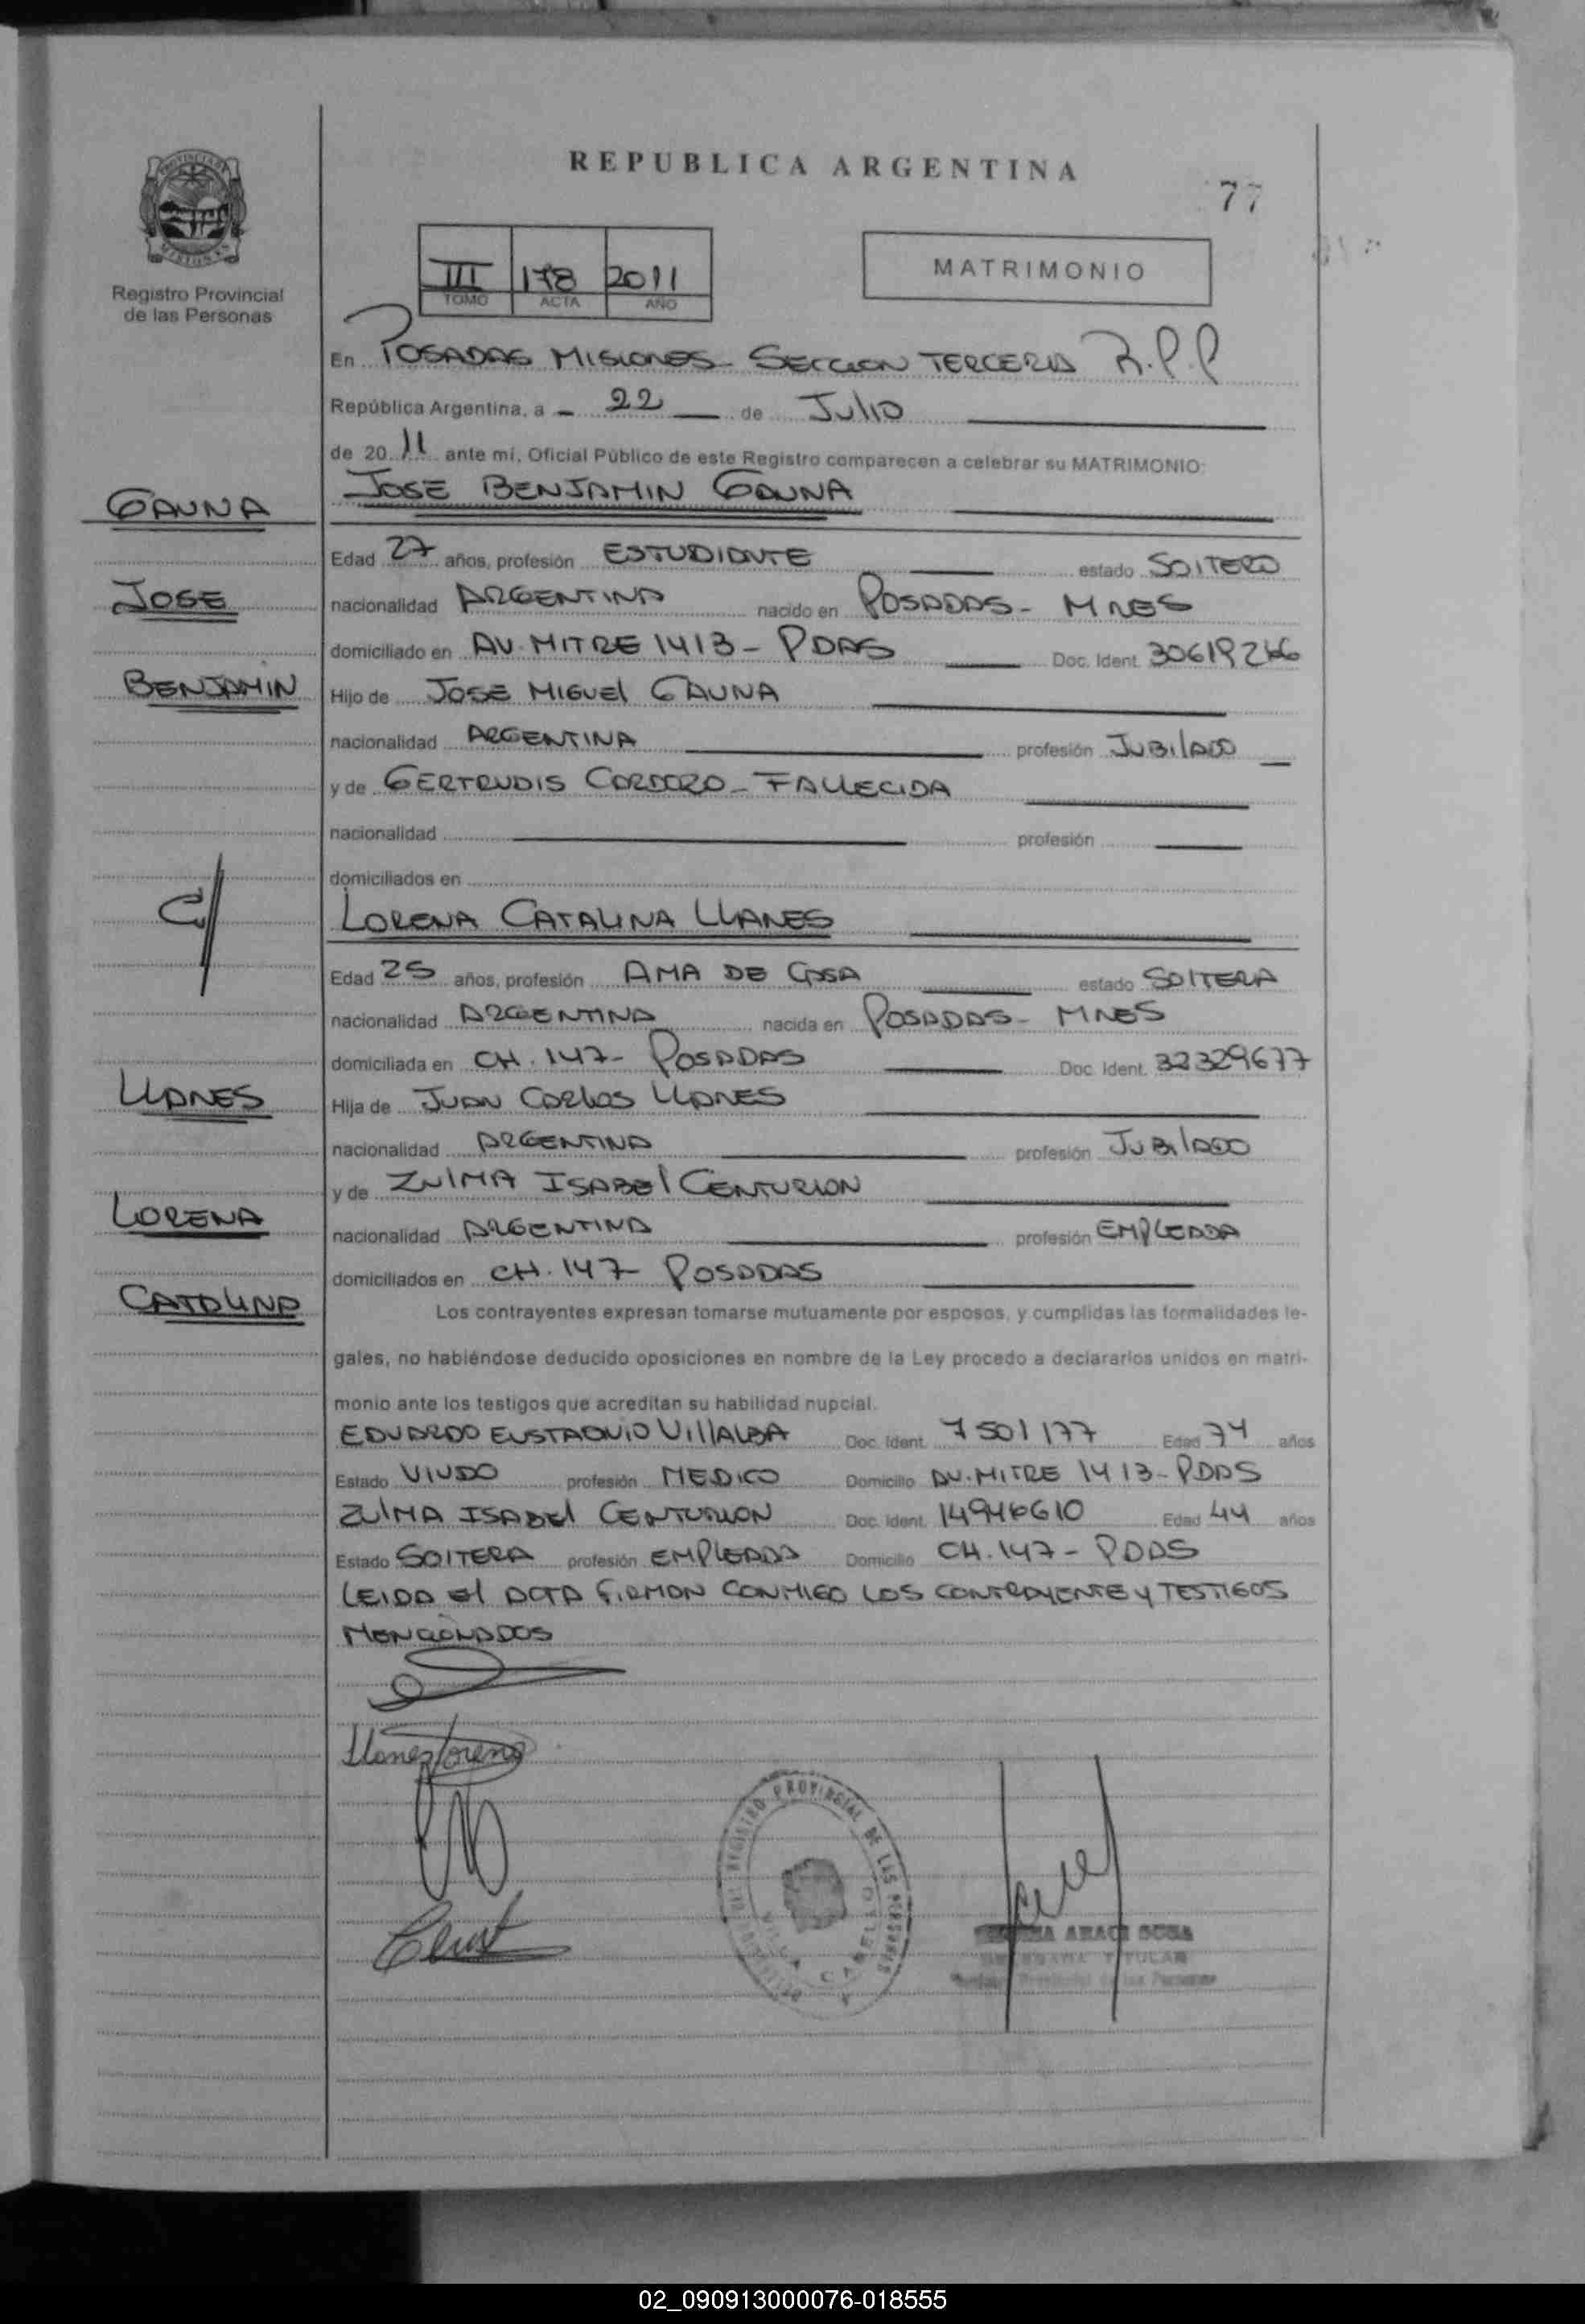 REPUBLICA ARGENTINA
77
PROVINCIA DE
MISIONES
Registro Provincial
de las Personas
III 178 2011
TOMO ACTA AÑO
MATRIMONIO
En POSADAS MISIONES - SECCION TERCERA R.P.P
República Argentina, a - 22 de JULIO
de 2011 ante mí, Oficial Público de este Registro comparecen a celebrar su MATRIMONIO:
JOSE BENJAMIN GAUNA
GAUNA
Edad 27 años, profesión ESTUDIANTE estado SOLTERO
JOSE
nacionalidad ARGENTINA nacido en POSADAS - MNES
domiciliado en AV. MITRE 1413 - PDAS Doc. Ident. 30619266
BENJAMIN
Hijo de JOSE MIGUEL GAUNA
nacionalidad ARGENTINA profesión JUBILADO
y de GERTRUDIS CORDOZO - FALLECIDA
nacionalidad profesión
domiciliados en
C/
LORENA CATALINA LLANES
Edad 25 años, profesión AMA DE CASA estado SOLTERA
nacionalidad ARGENTINA nacida en POSADAS - MNES
domiciliada en CH. 147 - POSADAS Doc. Ident. 32329677
LLANES
Hija de JUAN CARLOS LLANES
nacionalidad ARGENTINA profesión JUBILADO
y de ZULMA ISABEL CENTURION
LORENA
nacionalidad ARGENTINA profesión EMPLEADA
domiciliados en CH. 147 POSADAS
CATALINA
Los contrayentes expresan tomarse mutuamente por esposos, y cumplidas las formalidades le-
gales, no habiéndose deducido oposiciones en nombre de la Ley procedo a declararlos unidos en matri-
monio ante los testigos que acreditan su habilidad nupcial.
EDUARDO EUSTAQUIO VILLALBA Doc. Ident. 7501177 Edad 74 años
Estado VIUDO profesión MEDICO Domicilio AV. MITRE 1413 - PDAS
ZULMA ISABEL CENTURION Doc. Ident. 14946610 Edad 44 años
Estado SOLTERA profesión EMPLEADA Domicilio CH. 147 - PDAS
LEIDA El ACTA FIRMAN CONMIGO LOS CONTRAYENTE Y TESTIGOS
MENCIONADOS
Llanes Lorena
REGISTRO PROVINCIAL DE LAS PERSONAS
VILLA CABELLO
ARACI SOSA
TITULAR
Provincial de las Personas
02_090913000076-018555